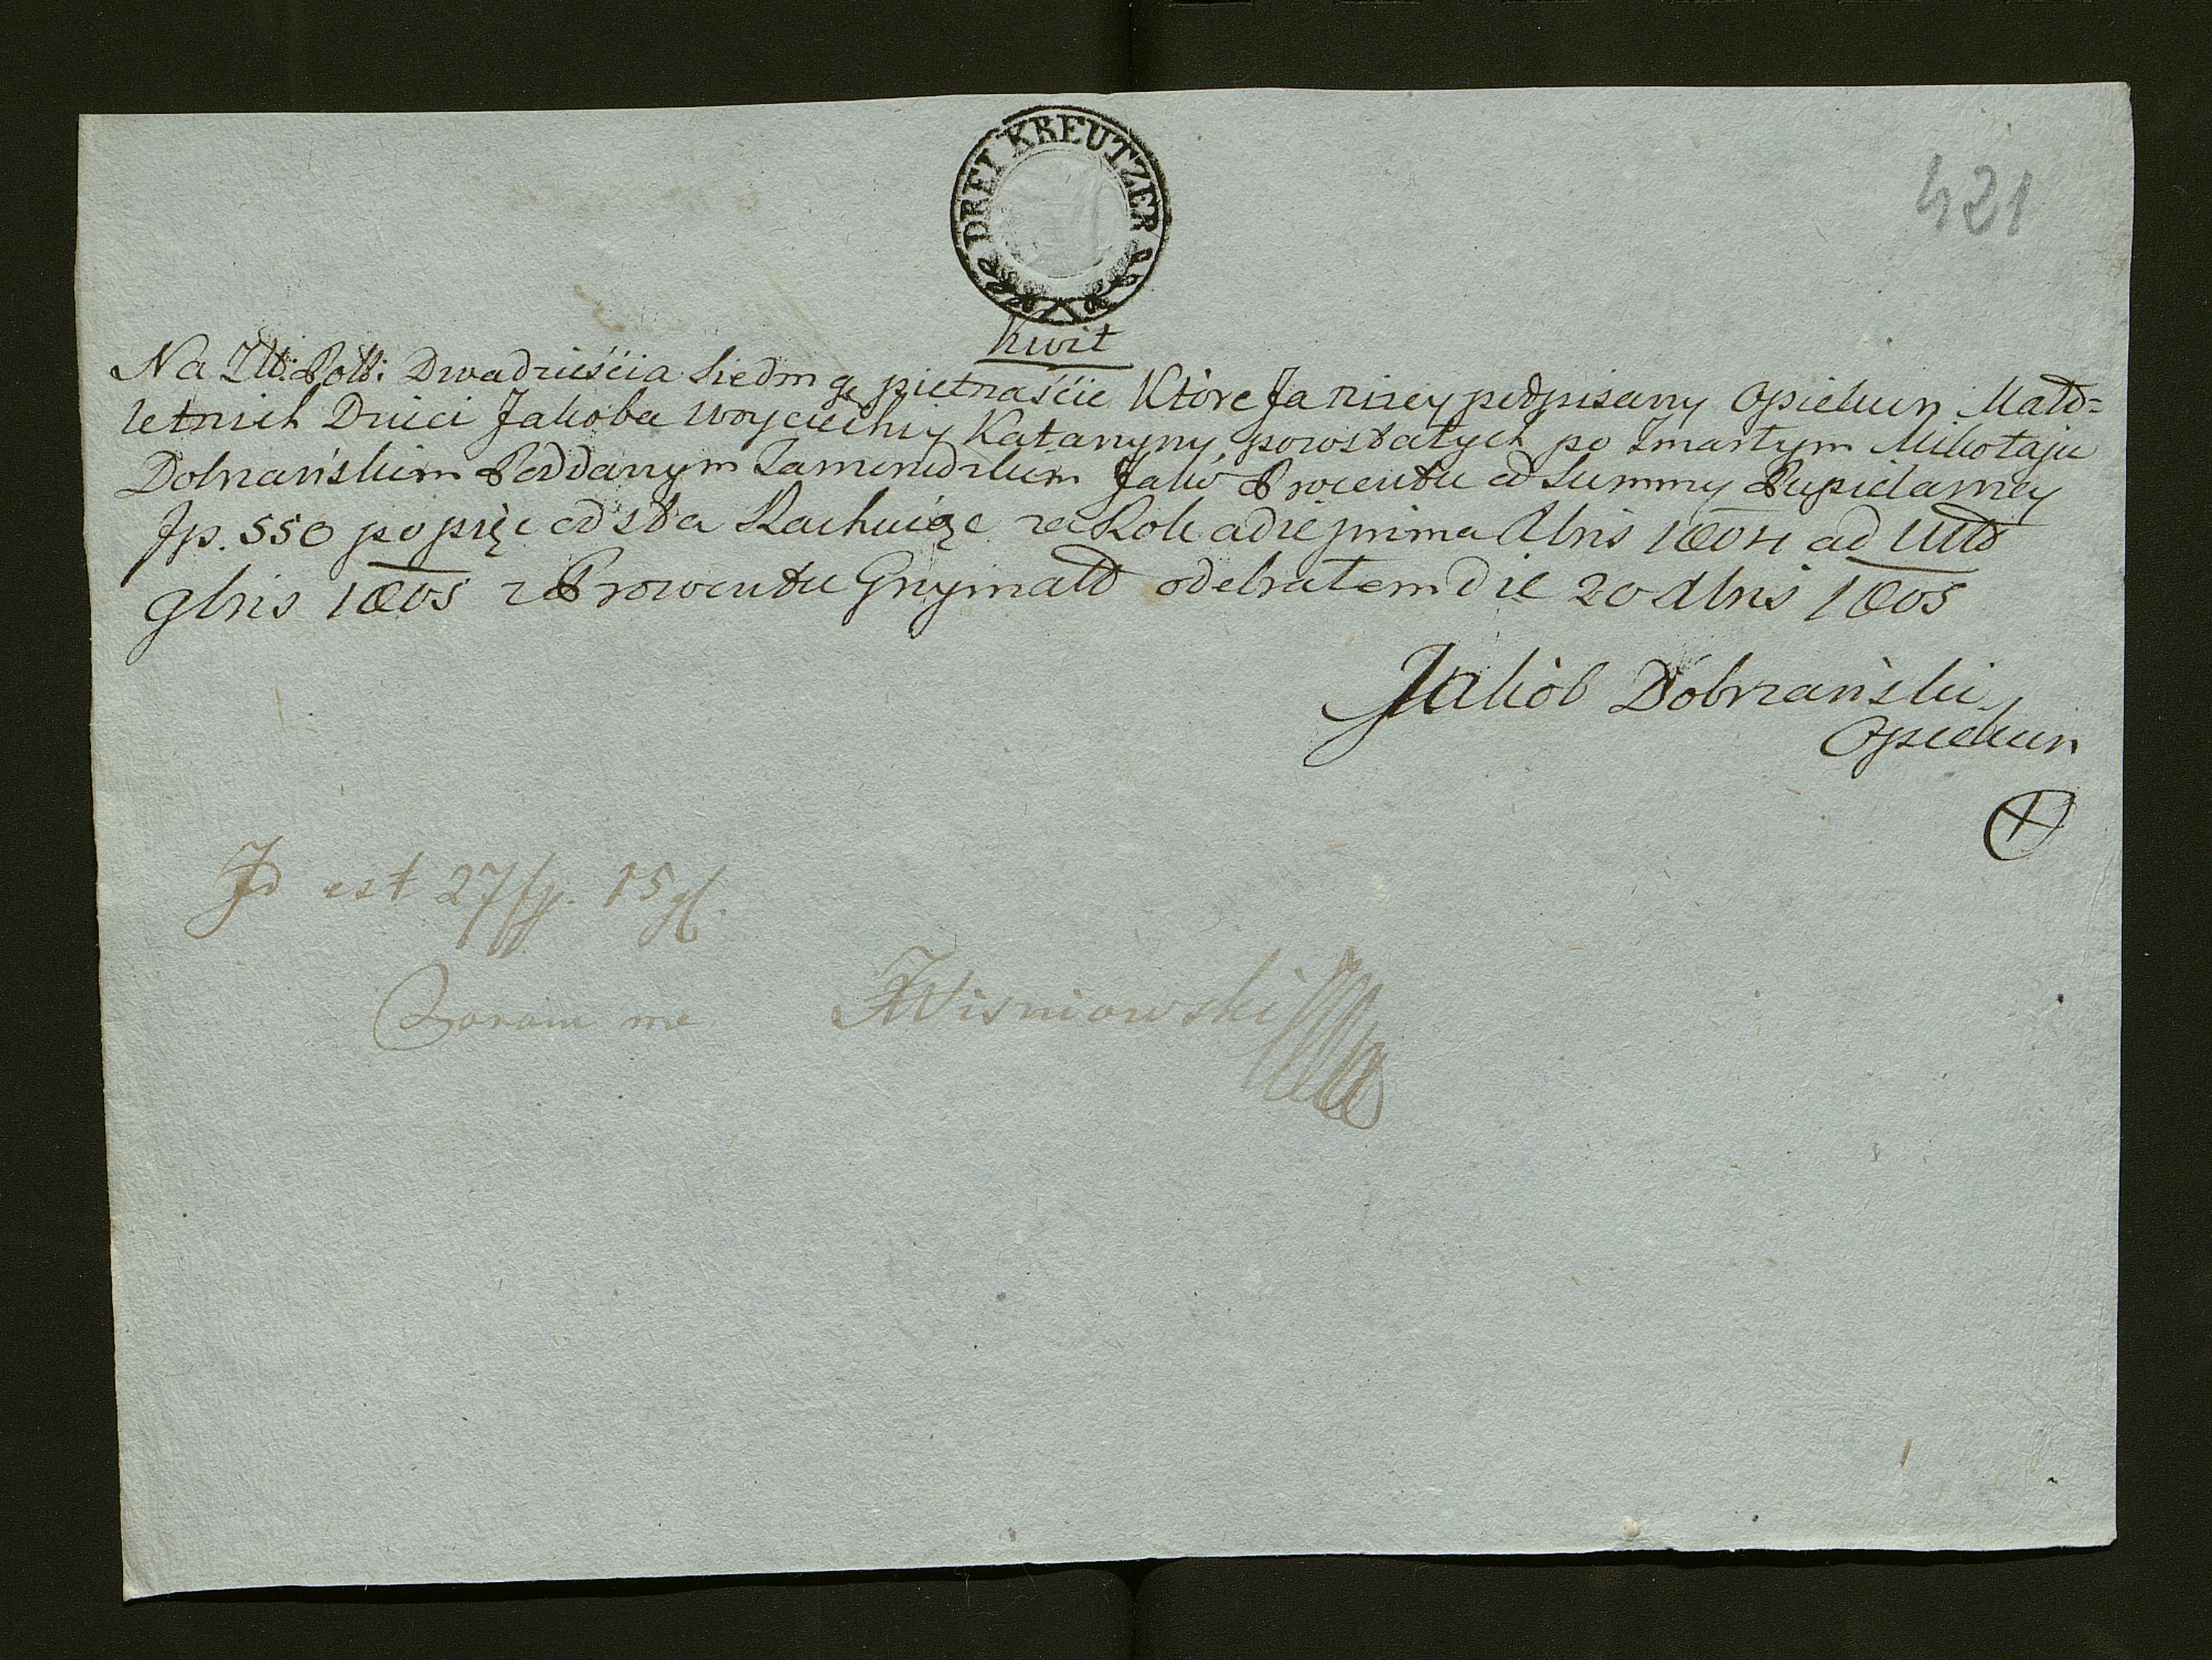 DREI KREUTZER
421
Kwit
Na Złł: Poll: Dwadzieścia siedm gr piętnaście Które Ja niżey podpisany Opiekun Mało=
letnich Dzieci Jakoba Woyciechy Katarzyny, pozostałych po zmarłym Mikołaju
Dobrzańskim Poddanym Jako Procentu od Summy Pupielarney
fp. 550 po pięć od sta Rachuiąc za Rok a die prima Xbris 1804 ad
9bris 1805 z Prowentu Grzymał odebrałem die 20 Xbris 1805
Jakób Dobrzański
Opiekun
Id est 27 fp. 15 gl.
Coram me JWisniowski